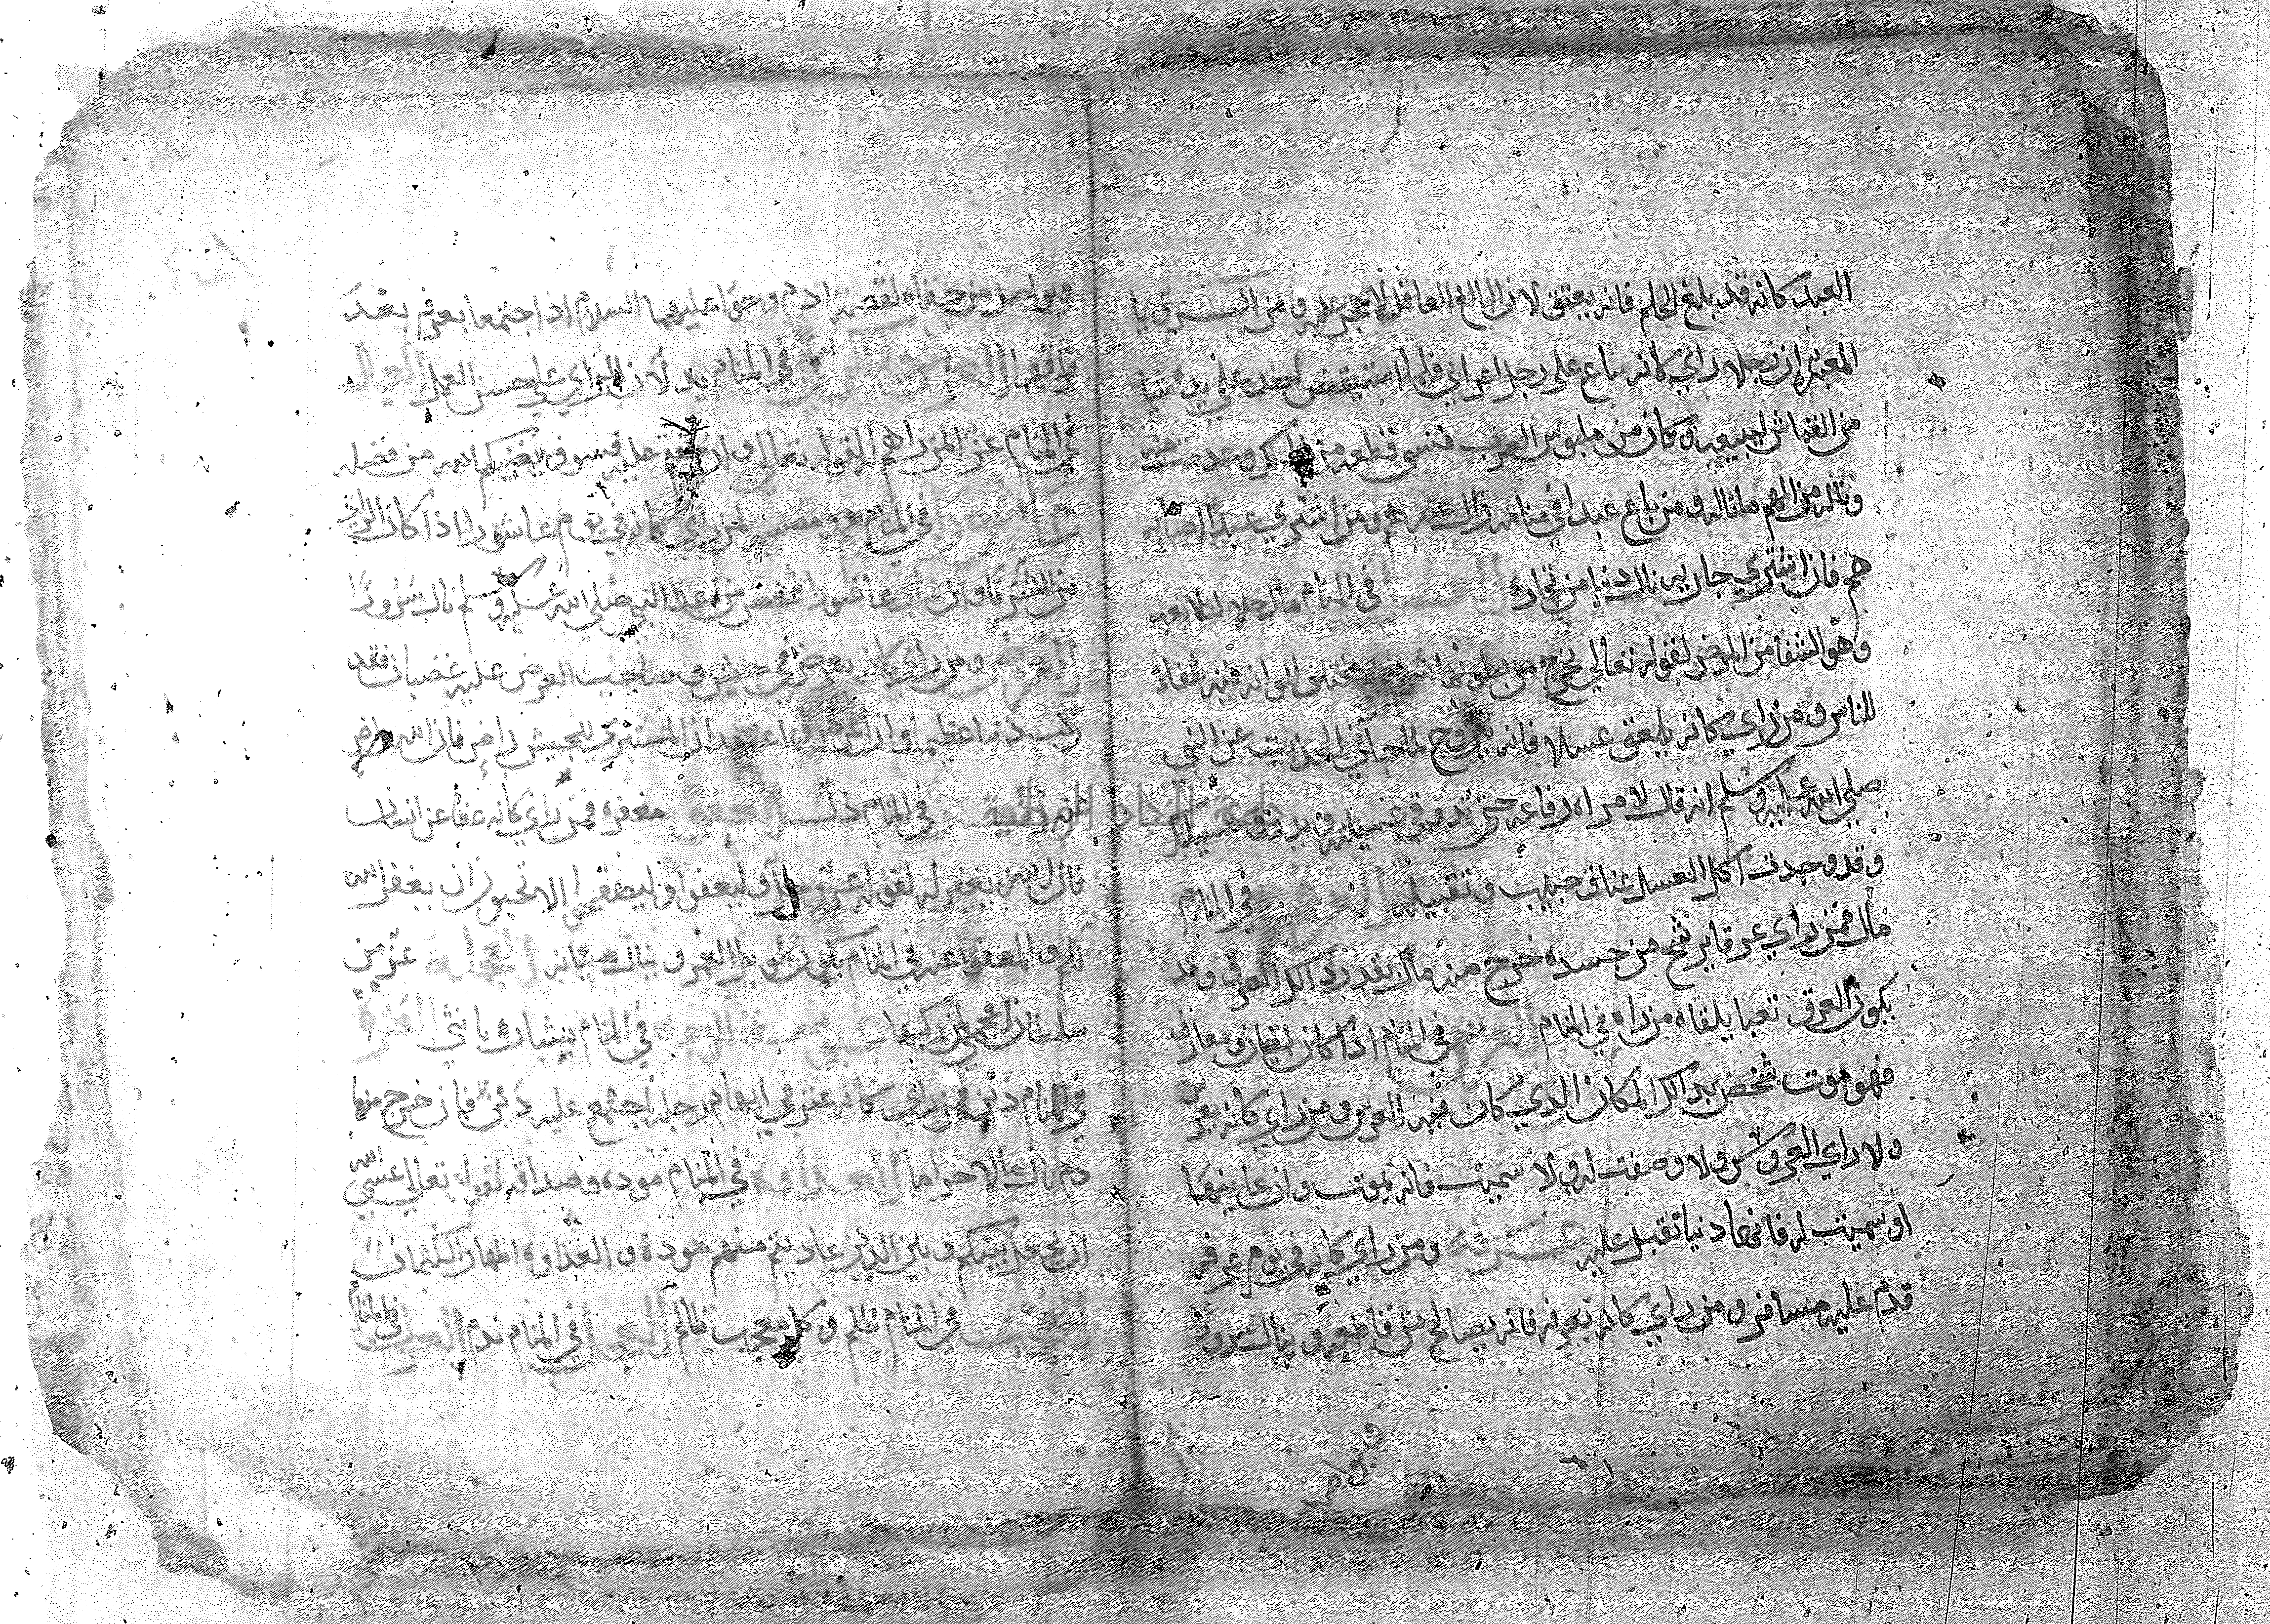 العبد كانه قد بلغ الحلم فانه يعتق لان البالغ العاقل لا حجر عليه ومن
المعبره ان رجلا راي كانه باع على رجل اعرابي فلما استيقض اخد على يده شيا
من القماش ليبيعه وكان من ملبوس العرب فنسى قطعه من ذلك وعدمت منه
وناله من الهم ما ناله ومن باع عبدا في منامه زال عنه هم ومن اشتري عبدا اصابه
هم فان اشتري جاريه نال دنيا من تجاره العسل في المنام مال حلال بلا تعب
وهو الشفا من المرض لقوله تعالي يخرج من بطونها شراب مختلف الوانه فيه شفاء
للناس ومن راي كانه يلعق عسلا فانه يتزوج لما جآ في الحديث عن النبي
صلي الله عليه وسلم انه قال لامراه رفاعه حتى تدوقي عسيلته ويدوق عسيلتك
وقد وجدت اكل العسل عناق حبيب وتقبيله العرق في المنام
مال فمن راي عرقا يرشح من جسده خرج منه مال بقدر ذالك العرق وقد
يكون العرق تعبا يلقاه من راه في المنام العرس في المنام اذا كان بقيان ومعازف
فهو موت شخص بذالك المكان الدي كان فيه العرس ومن راي كانه عرس
ولا راي العروس ولا وصفت له ولا سميت فانه يموت وان عاينها
او سميت له فانها دنيا تقبل عليه عرفه ومن راي كانه في يوم عرفه
قدم عليه مسافر ومن راي كانه بعرفه فانه يصالح من قاطعه وينال سرورا
ويواصل
ويواصل من جفاه لقصة ادم وحوا عليهما السلام اذا اجتمعا بعرفه بعد
فراقهما العرش والكرسي في المنام يدلان للراي علي حسن العمل العيال
في المنام عز لمن راهم لقوله تعالي وان خفتم عليه فسوف يغنيكم الله من فضله
عاشورا في المنام هم ومصيبه لمن راي كانه في يوم عاشورا اذا كان الراي
من الشرفا وان راي عاشورا شخص من اعدا النبي صلي الله عليه وسلم نال سرورا
العرض ومن راي كانه يعرض في جيش وصاحب العرض عليه غضبان فقد
ركب ذنبا عظيما وان عرض واعتقد ان المستبري للجيش راض فان الله راض
عنه في المنام ذل العفو مغفره فمن راي كانه عفا عن انسان
فان الله يغفر له لقوله عز وجل وليعفوا وليصفحوا الا تحبون ان يغفر الله
لكم والمعفوا عنه في المنام يكون طويل العمر وينال صيانه العجلة عز من
سلطان اعجمي لمن ركبها عبوسة الوجه في المنام بشاره بانثي العثرة
في المنام دين فمن راي كانه عثر في ابهام رجله اجتمع عليه دين فان خرج منها
دم نال مالا حراما العداوة في المنام موده وصداقه لقوله تعالي عسى الله
ان يجعل بينكم وبين الدين عاديتم منهم مودة والعداوه اظهار الكتمان
العجب في المنام ظلم وكل معجب ظالم العجل في المنام ندم العزل في المنام